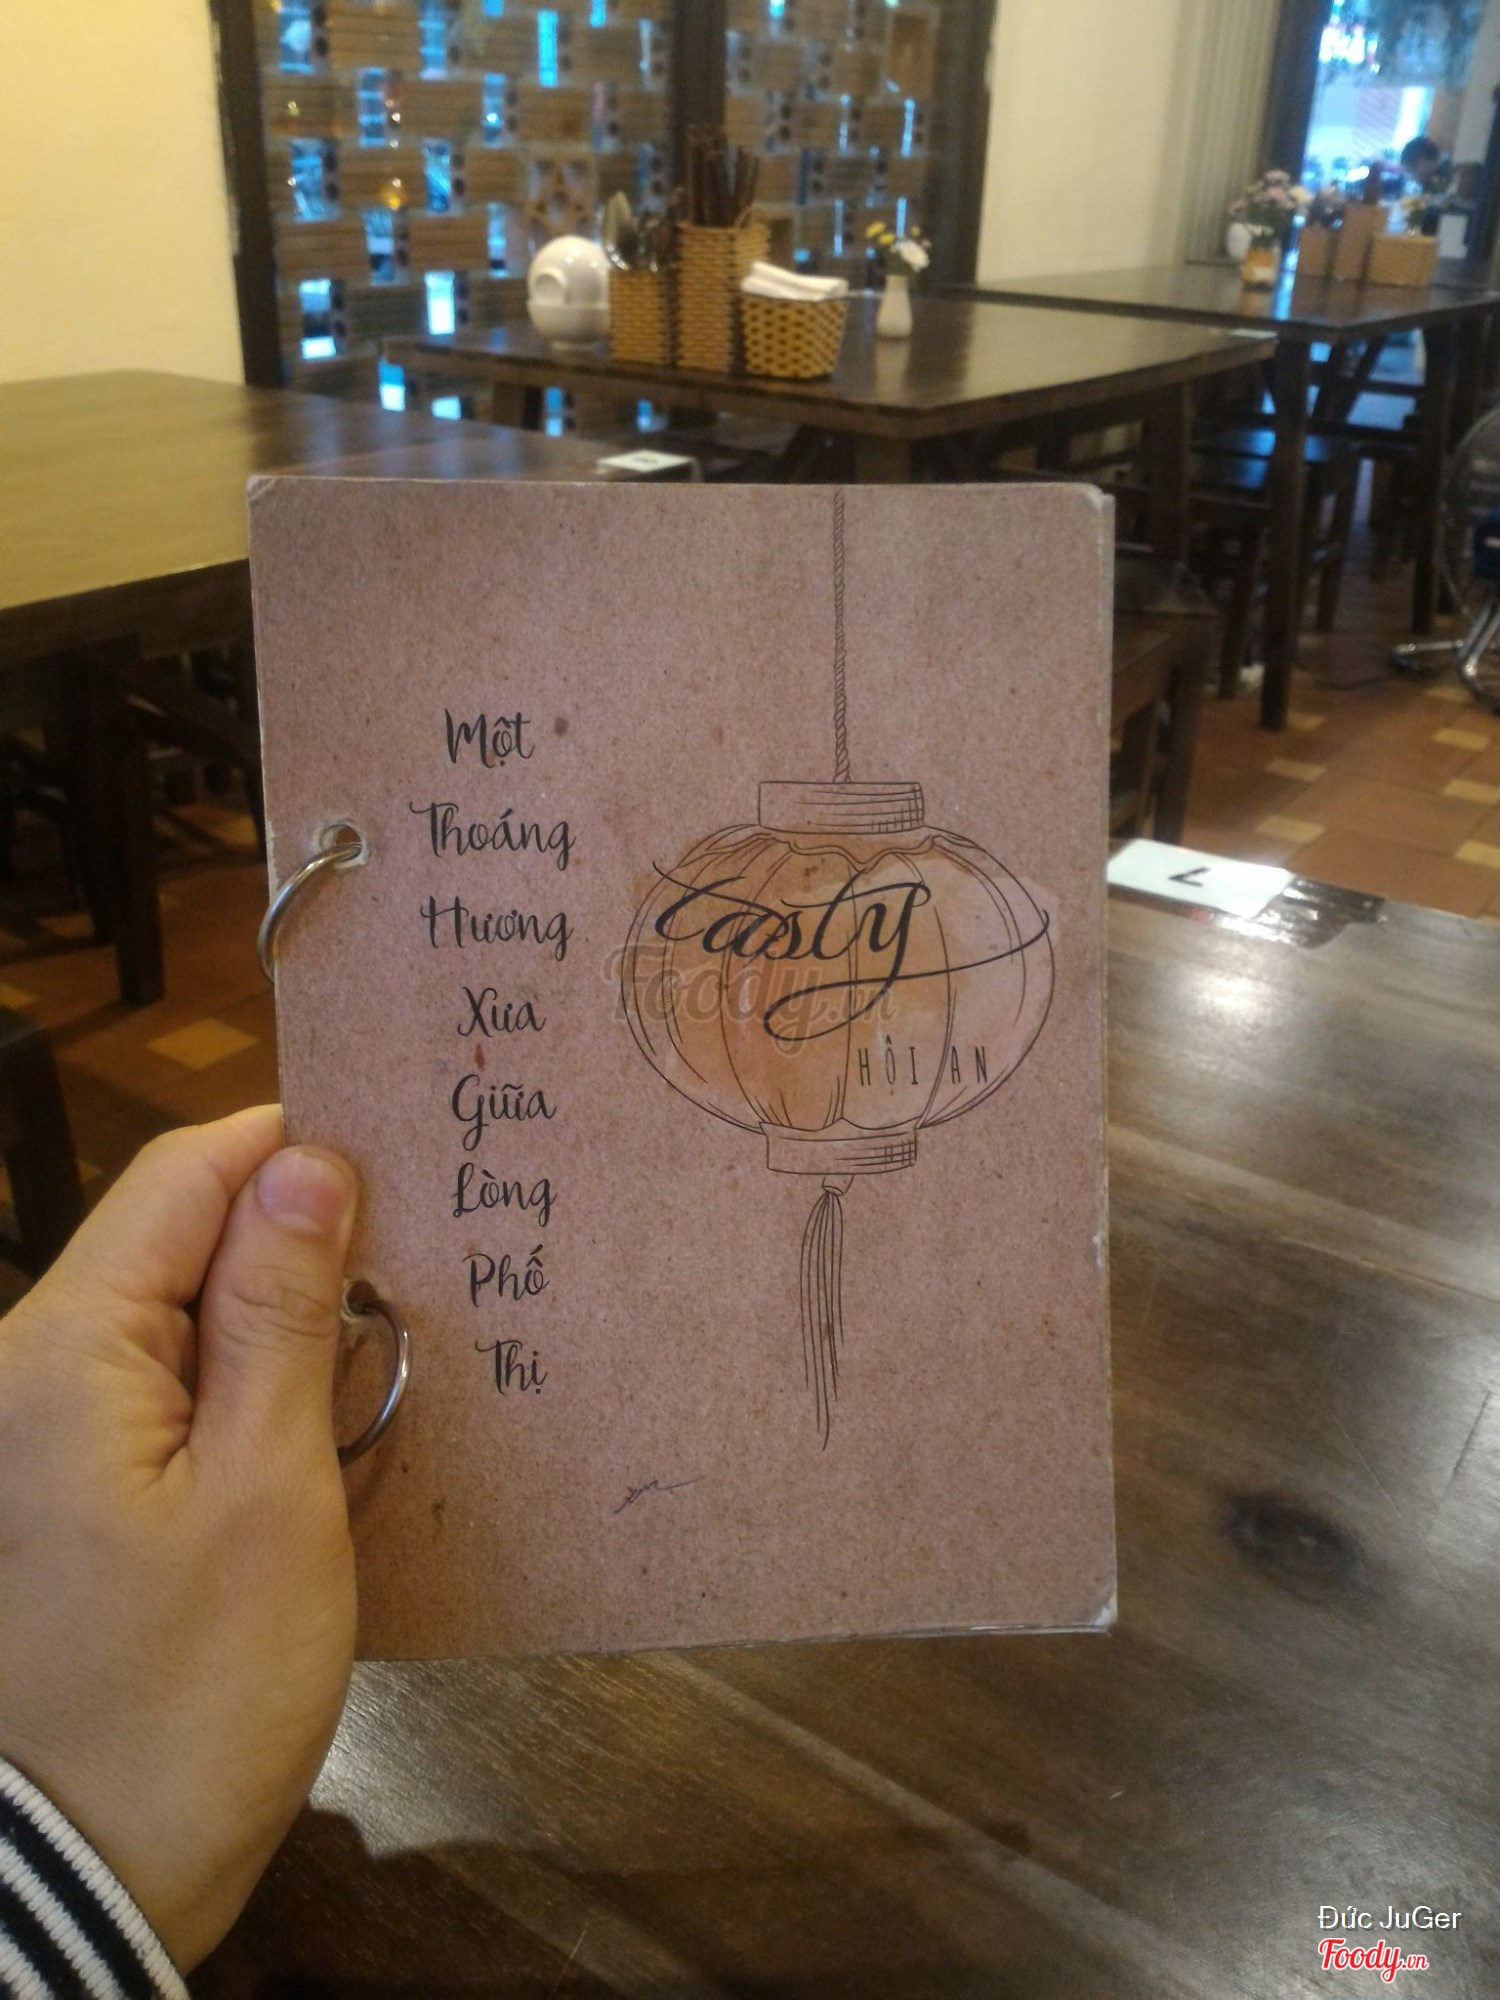 Một
Thoáng
Hương
Xưa
Giữa
Lòng
Phố
Thị
Tasty
HỘI AN
Foody.vn
7
Đức JuGer
Foody.vn